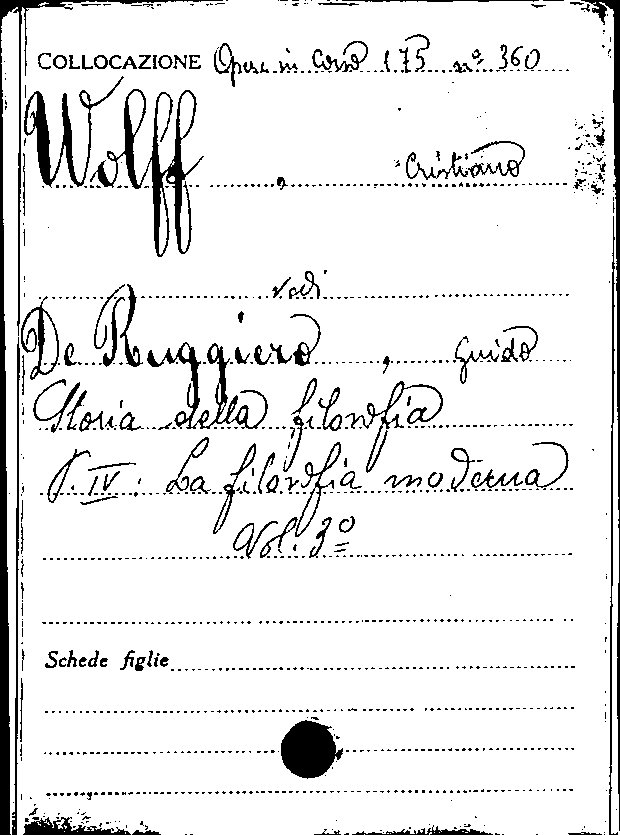 COLLOCAZIONE Opere in corso 175 nº 360
Wolff , Cristiano
vedi
De Ruggiero , Guido
Storia della filosofia
P. IV : La filosofia moderna
Vol. 3º
Schede figlie